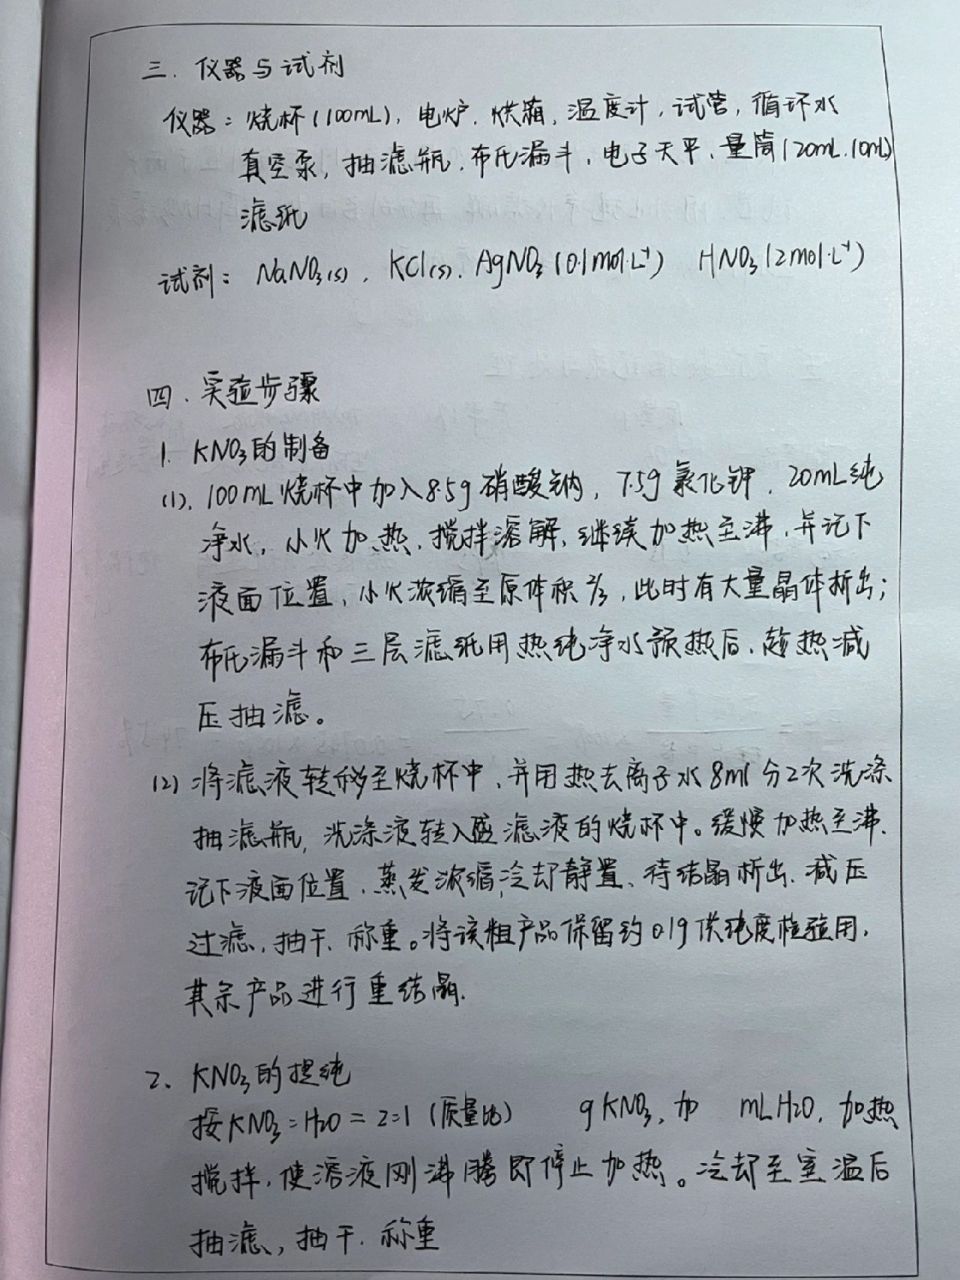 三.仪器与试剂
仪器:烧杯(100mL),电炉.烘箱,温度计,试管,循环水
真空泵,抽滤瓶.布氏漏斗.电子天平.量筒(20mL.10mL)
滤纸
试剂:NaNO₃(s).KCl(s).AgNO₃(0.1mol·L⁻¹) HNO₃(2mol·L⁻¹)
四.实验步骤
1.KNO₃的制备
(1).100mL烧杯中加入8.5g硝酸钠,7.5g氯化钾.20mL纯
净水,小火加热.搅拌溶解.继续加热至沸,并记下
液面位置,小火浓缩至原体积2/3,此时有大量晶体析出;
布氏漏斗和三层滤纸用热纯净水预热后.趁热减
压抽滤。
(2)将滤液转移至烧杯中,并用热去离子水8ml分2次洗涤
抽滤瓶,洗涤液转入盛滤液的烧杯中。缓慢加热至沸.
记下液面位置.蒸发浓缩,冷却静置、待结晶析出.减压
过滤.抽干.称重。将该粗产品保留约0.1g供纯度检验用.
其余产品进行重结晶.
2、KNO₃的提纯
按KNO₃:H₂O=2:1(质量比) gKNO₃,加 mLH₂O,加热
搅拌,使溶液刚沸腾即停止加热。冷却至室温后
抽滤,抽干.称重